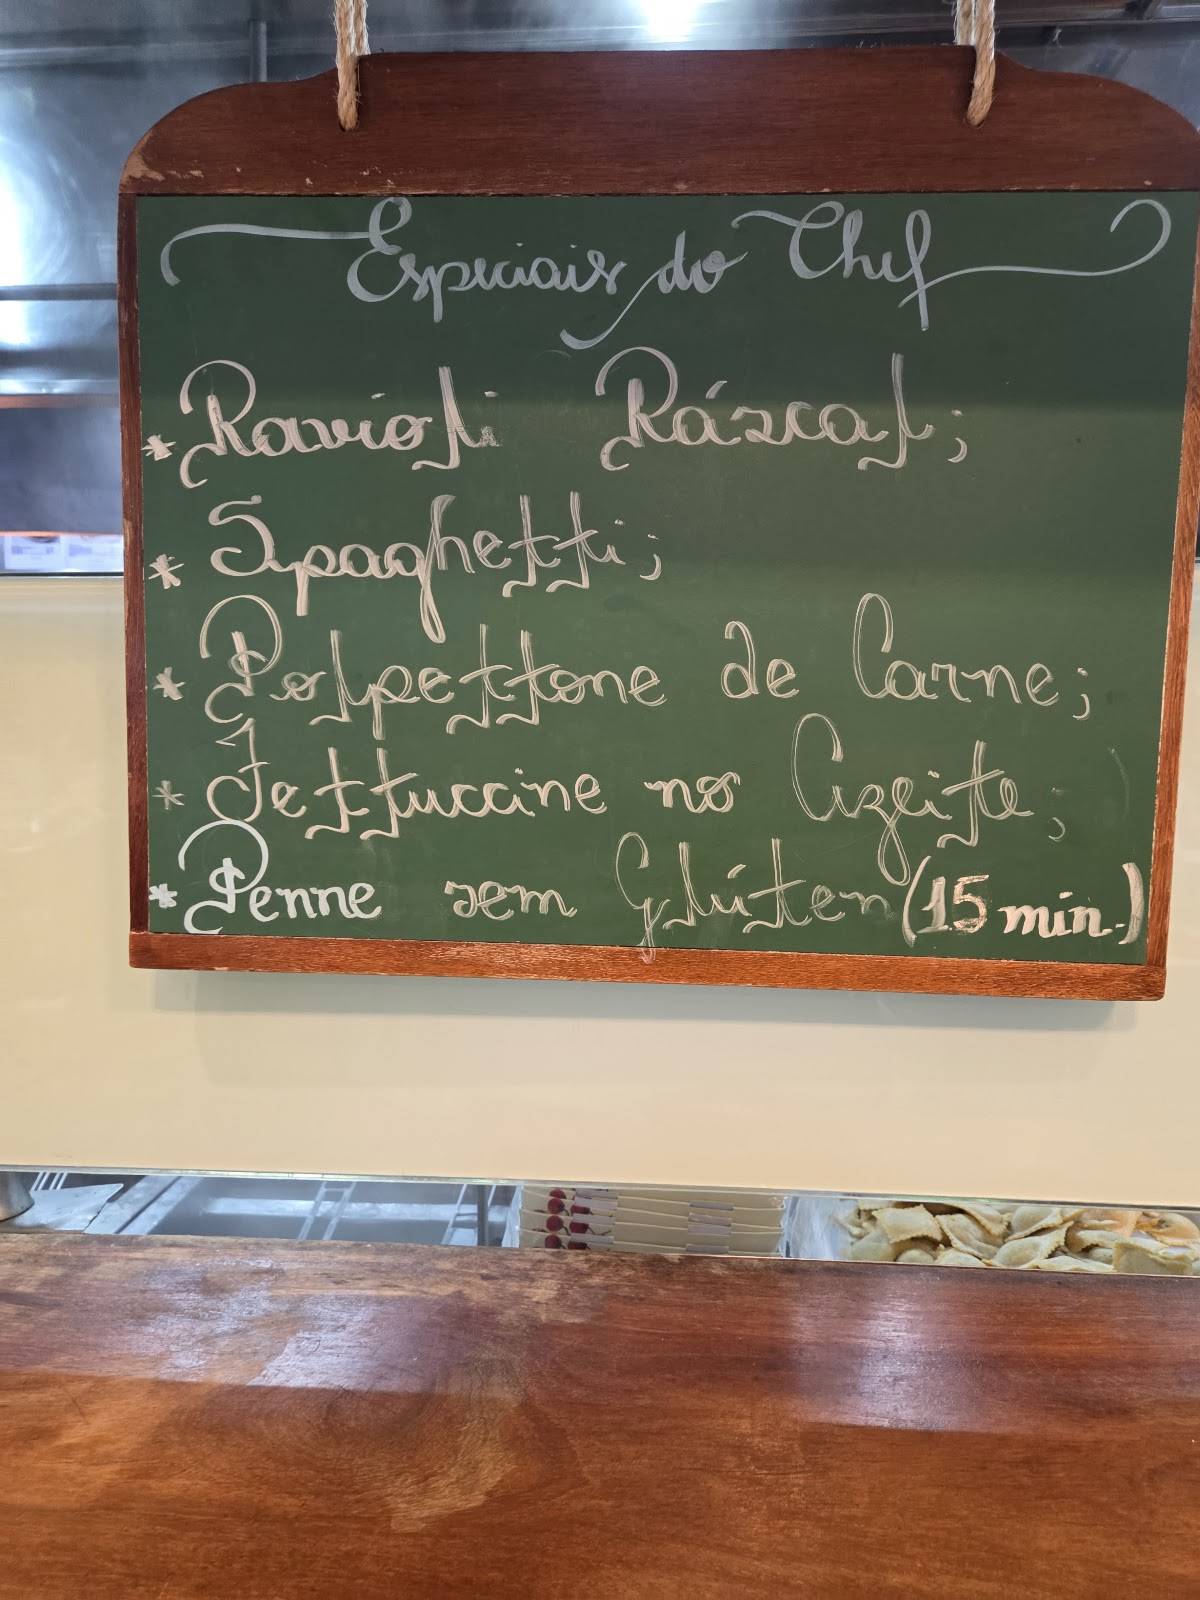 Especiais do Chef
* Ravioli Ráscal;
* Spaghetti;
* Polpettone de Carne;
* Fettuccine no Azeite;
* Penne sem Glúten (15 min.)